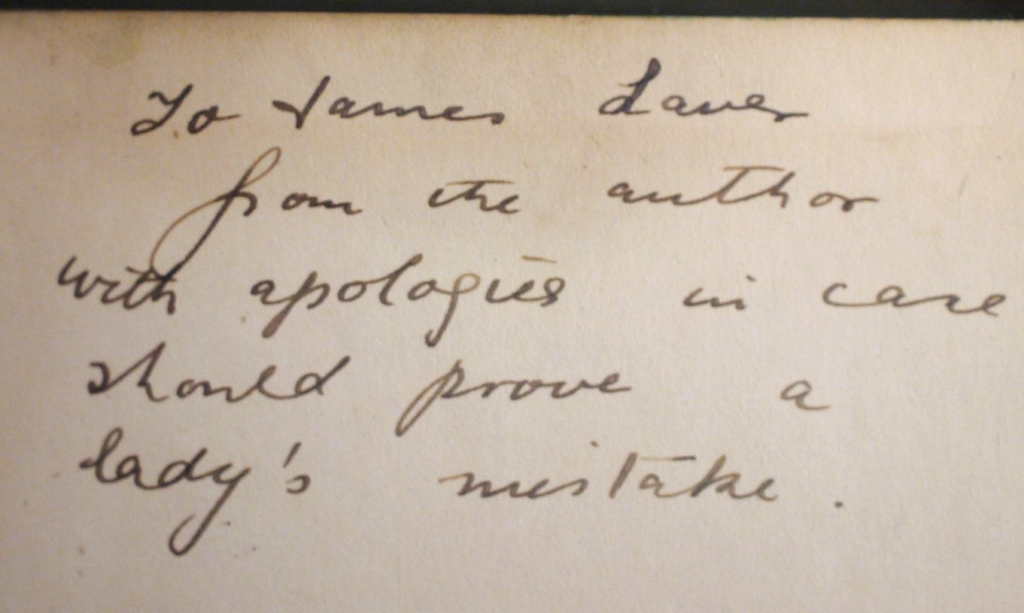 To James Laver
from the author
with apologies in case
should prove a
lady's mistake.